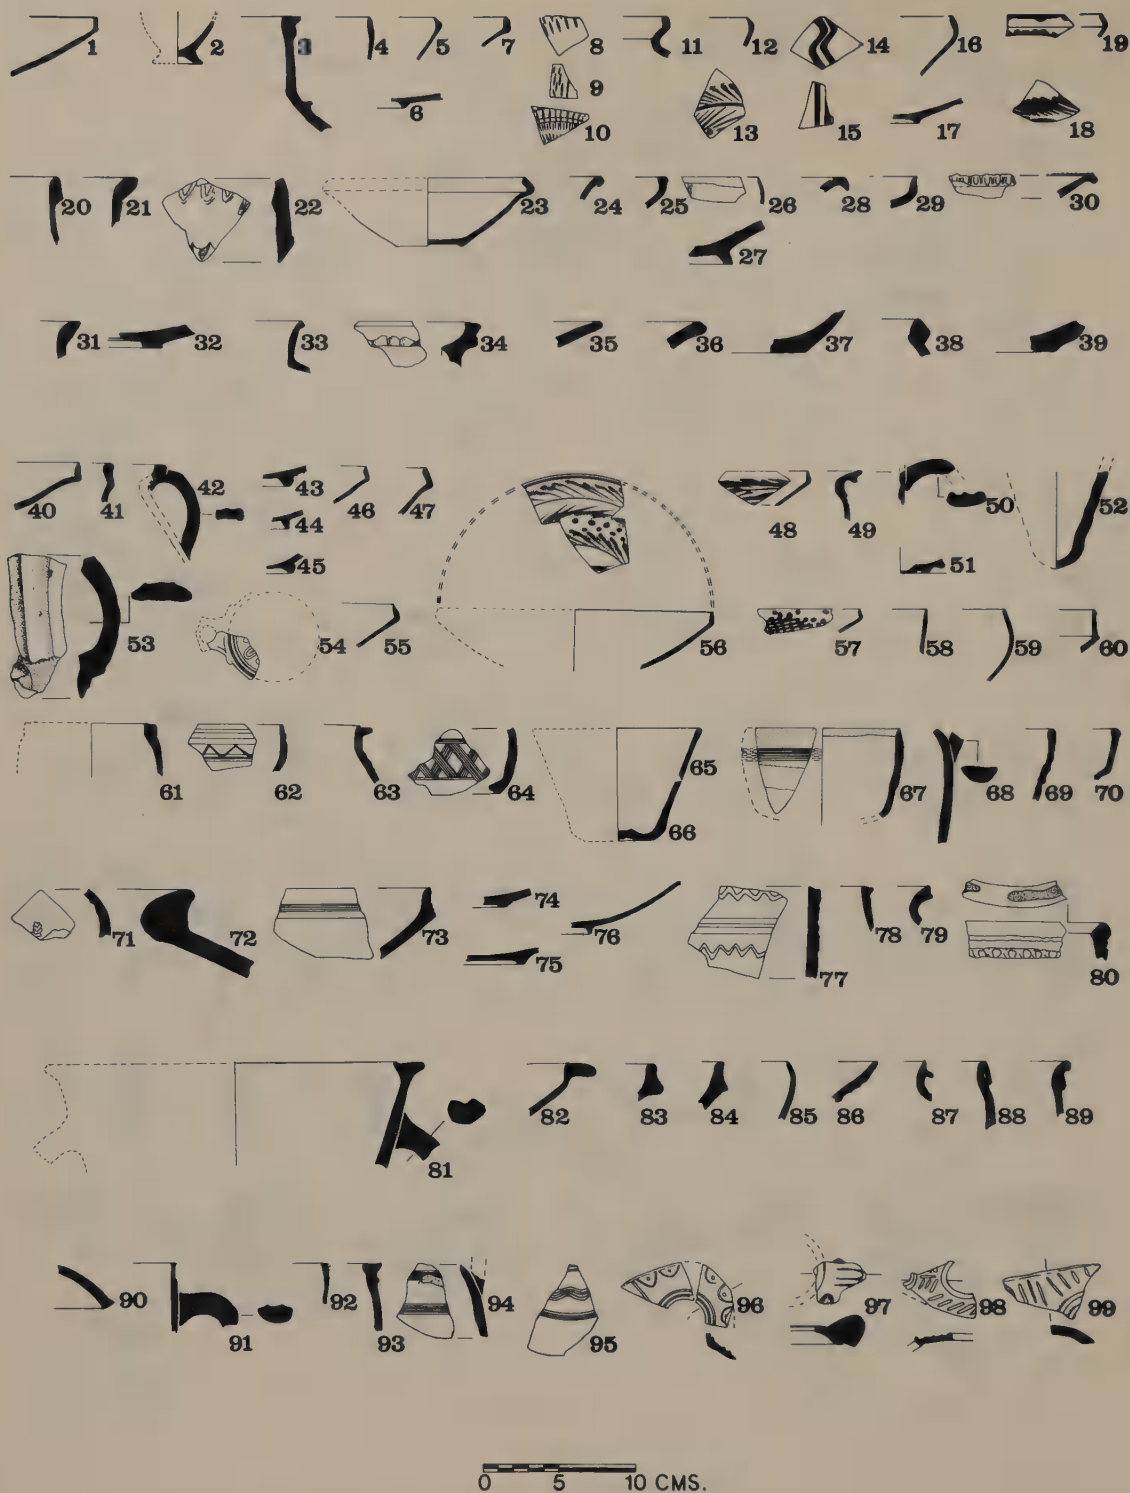 1 2 3 4 5 7 8 11 12 14 16 19
6 9 10 13 15 17 18
20 21 22 23 24 25 26 28 29 30
27
31 32 33 34 35 36 37 38 39
40 41 42 43 46 47 48 49 50 52
44
45 51
53 54 55 56 57 58 59 60
61 62 63 64 65 67 68 69 70
66
71 72 73 74 76 77 78 79 80
75
81 82 83 84 85 86 87 88 89
90 91 92 93 94 95 96 97 98 99
0 5 10 CMS.